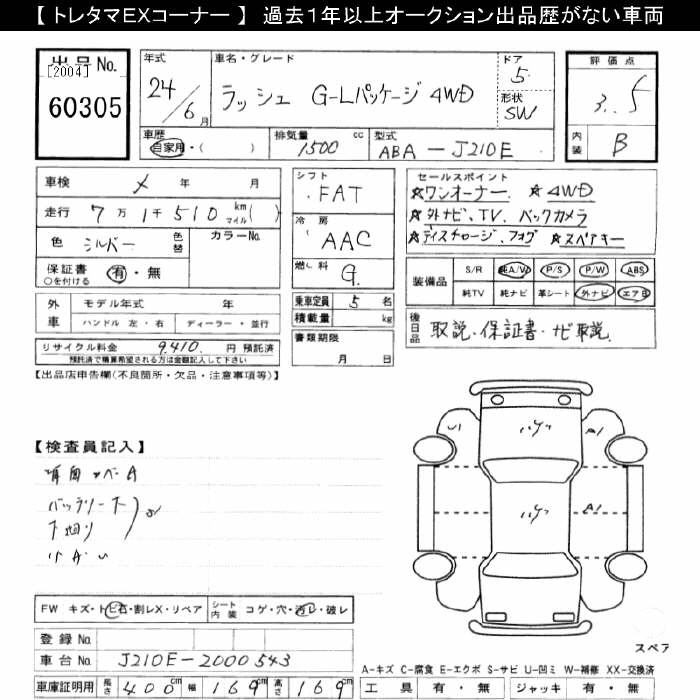 【 トレタマEXコーナー 】 過去1年以上オークション出品歴がない車両
出品No.
[2004]
60305
年式 24/6月
車名・グレード ラッシュ G-Lパッケージ 4WD
ドア 5
形状 SW
評価点 3.5
内装 B
車歴 自家用・( )
排気量 1500 cc
型式 ABA - J210E
車検 × 年 月
走行 7万1千510 km マイル( )
色 シルバー 色替
カラーNo.
保証書 有・無
○を付ける
シフト FAT
冷房 AAC
燃料 G.
乗車定員 5名
積載量 kg
セールスポイント
☆ワンオーナー. ☆4WD
☆外ナビ、TV、バックカメラ
☆ディスチャージ、フォグ ☆スペアキー
装備品 S/R 純A/W P/S P/W ABS
純TV 純ナビ 革シート 外ナビ エアB
外車 モデル年式 年
ハンドル 左・右 ディーラー・並行
リサイクル料金 9,410. 円 預託済
預託済で精算希望される方は金額記入して下さい
書類期限 月 日
後日品 取説・保証書・ナビ取説
【出品店申告欄(不良箇所・欠品・注意事項等)】
【検査員記入】
バッテリー下
下廻り
小A・U
U1 A1
A1
FW キズ・トビ石・割レX・リペア シート内装 コゲ・穴・汚レ・破レ
登録No.
車台No. J210E-2000543
スペア
A-キズ C-腐食 E-エクボ S-サビ U-凹ミ W-補修 XX-交換済
車庫証明用 長さ 400cm 幅 169cm 高さ 169cm
工具 有・無 ジャッキ 有・無